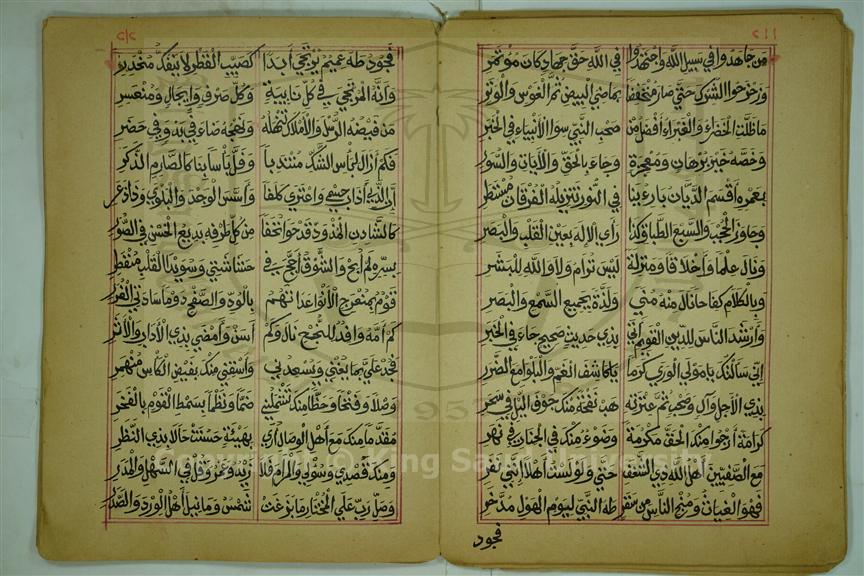 ٢١١
من جاهدوا في سبيل الله واجتهدوا في الله حق جهاد كان مؤتمر
وزحزحوا الشرك حتى صار منخفضا بماضي البيض ثم القوس والوتر
ما ظلت الخضراء والغبراء أفضل من صحب النبي سوا الأنبياء في الخبر
وخصه خير برهان ومعجزة وجاء بالحق والآيات والسور
بعمره أقسم الديان بارئنا في النور تنزيله الفرقان مستطر
وجاوز الحجب والسبع الطباق وكذا رأى الإله بعين القلب والبصر
ونال علما وأخلاقا ومنزلة ليس ترام ولا والله للبشر
وبالكلام كفاحا نال منه منى ولذة بجميع السمع والبصر
وأرشد الناس للدين القويم بذي حديث صحيح جاء في الخبر
إني سألتك يا مولى الورى كرما يا كاشف الغم والبلواء مع الضرر
بذي الأجل وآل وصحب ثم عترته هب نفحة منك جوف الليل في سحر
كرامة أرجوا منك الحق مكرمة وضوء منك في الجنات في نهر
مع الصفيين أهل الله ذي الشغف حتى ولو لست أهلا إنني نفر
فهو الغياث ومنج الناس من سقر طه النبي ليوم الهول مدخر
فجود
٢١٢
فجود طه عميم يرتجى أبدا كصيب القطر لا ينفك منحدر
وأنه المرتجى في كل نايبة وكل صرف وإيجال ومنعسر
من فيضه الرسل والأملاك تنهله ونجمه ضاء في بدو وفي حضر
فكم أزال لباس الشك منتدبا وفل بأسا بنا كالصارم الذكر
إن الذي أذاب جسمي واعترى كلفا وأسس الوجد والبلوى وذا
كالشادن من كل طرفه بديع الحسن في الصور
بسره لم أبح والشوق أجج في حشاشتي وسويدا القلب منفطر
قوم بمنعرج بالود والصفح دوما سادتي الغرر
كم أمه وافد للنجح نال وكم أسن وأمضى بذي الآداب والأثر
فجد علي بما يغني ويسعدني واسقني منك بفيض الكأس منهمر
وصلا وفتحا وحظا منك تشملني ضما ونظما بسمط القوم بالفخر
مقدما منك مع أهل الوصال أرى بهيئة حسنت حالا بذي النظر
ومنك قصدي وسؤلي والمرام فلا زيد وعمرو قل في السهل والهدر
وصل رب على المختار ما بزغت شمس وما نيل أهل الورد والصدر
Copyright © King Saud University
1957